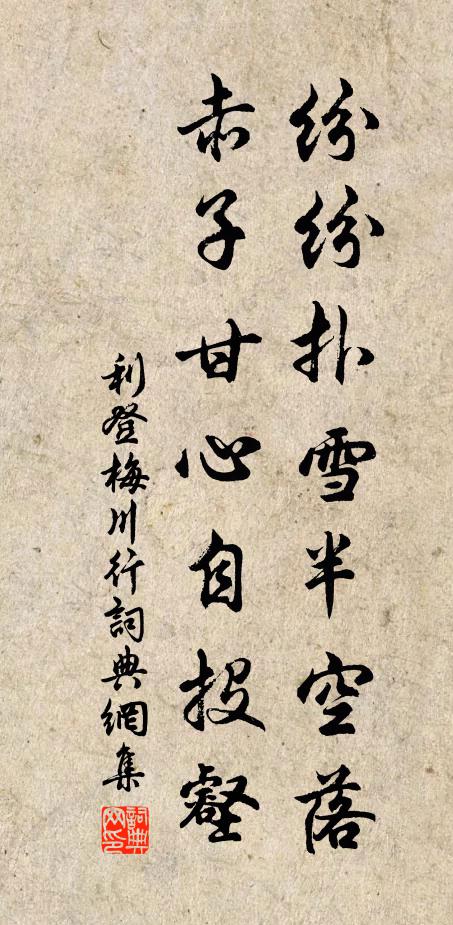 紛紛扑雪半空落
赤子甘心自投壑
利登梅川行詞典網集
詞典網印